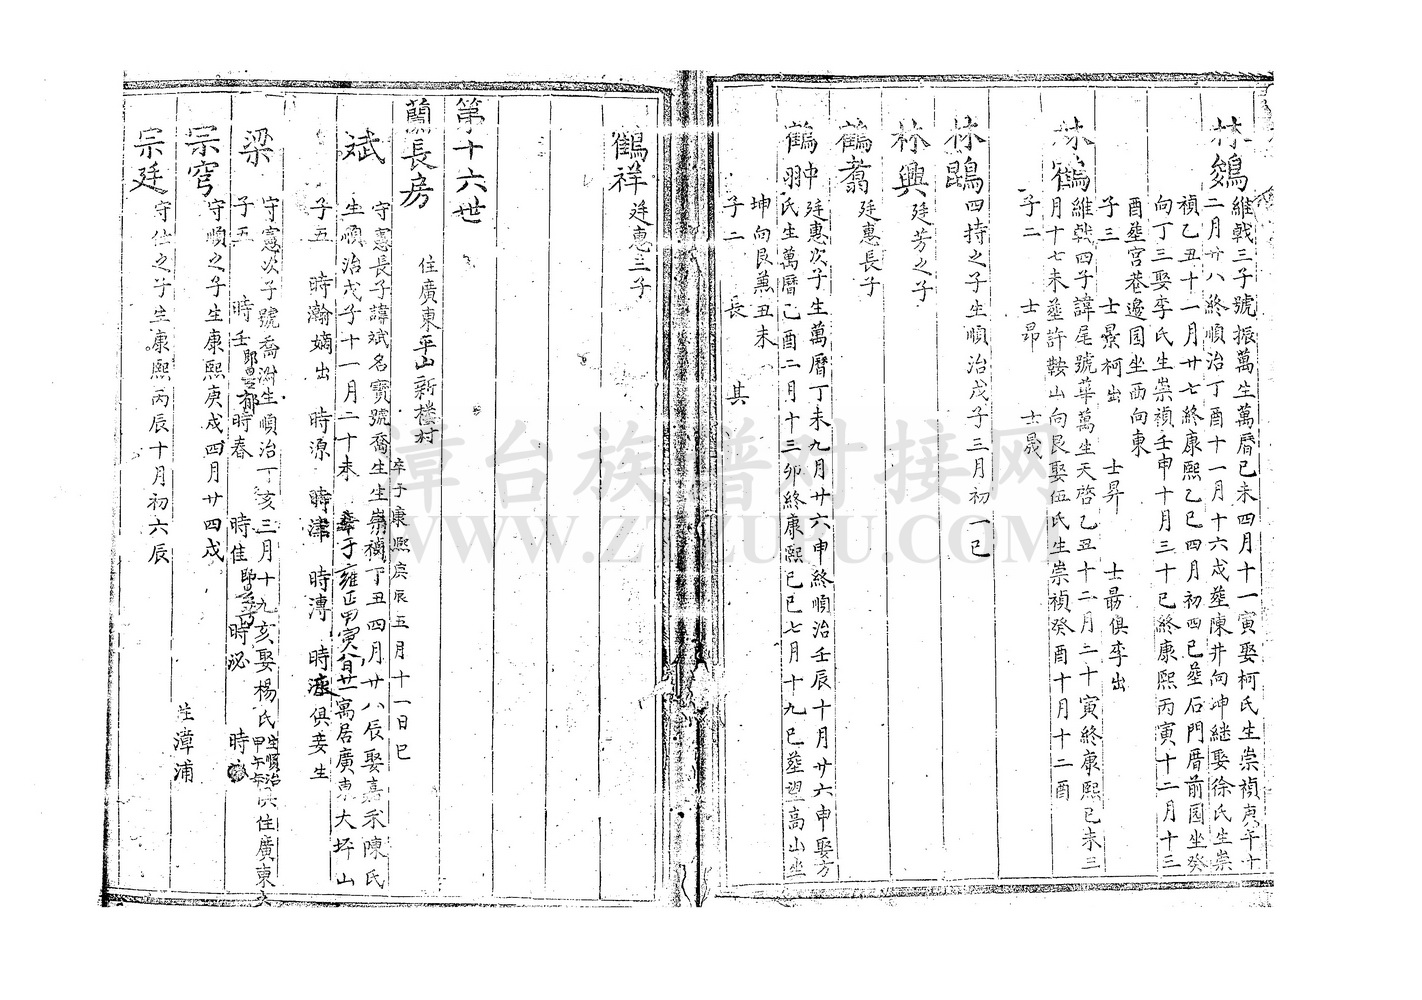 林鷄
維戟三子號振萬生萬曆己未四月十一寅娶柯氏生崇禎庚午十
二月廿八終順治丁酉十一月十六戌塟陳井向坤継娶徐氏生崇
禎乙丑十一月廿七終康熙乙巳四月初四巳塟石門厝前園坐癸
向丁三娶李氏生崇禎壬申十月三十巳終康熙丙寅十二月十三
酉塟宫巷邊园坐西向東
子三 士景柯出 士昇 士最俱李出
林鶴
維戟四子諱尾號華萬生天啓乙丑十二月二十寅終康熙己未三
月十七未塟許鞍山向艮娶伍氏生崇禎癸酉十月十二酉
子二 士昂 士晟
林鵾
四持之子生順治戊子三月初一巳
林興
廷芳之子
鶴翥
廷惠長子
鶴翀
廷惠次子生萬曆丁未九月廿六申終順治壬辰十月廿六申娶方
氏生萬曆己酉二月十三卯終康熙己巳七月十九巳塟望高山坐
坤向艮兼丑未
子二 長 其
鶴祥
廷惠三子
第十六世
蘭長房
住廣東平山新楼村
卒于康熙庚辰五月十一日巳
斌
守憲長子諱斌名寶號喬生生崇禎丁丑四月廿八辰娶嘉禾陳氏
生順治戊子十一月二十未 卒于雍正甲寅八月廿一寓居廣東大坪山
子五 時瀚嫡出 時源 時津 時溥 時 俱妾生
梁
守憲次子號喬澍生順治丁亥三月十九亥娶楊氏生順治甲午卒 俱住廣東
子五 時壬 時春 時佳 時泌 時
宗穹
守順之子生康熙庚戌四月廿四戌
住漳浦
宗廷
守仕之子生康熙丙辰十月初六辰
漳台族谱对接网
WWW.ZTZUPU.COM